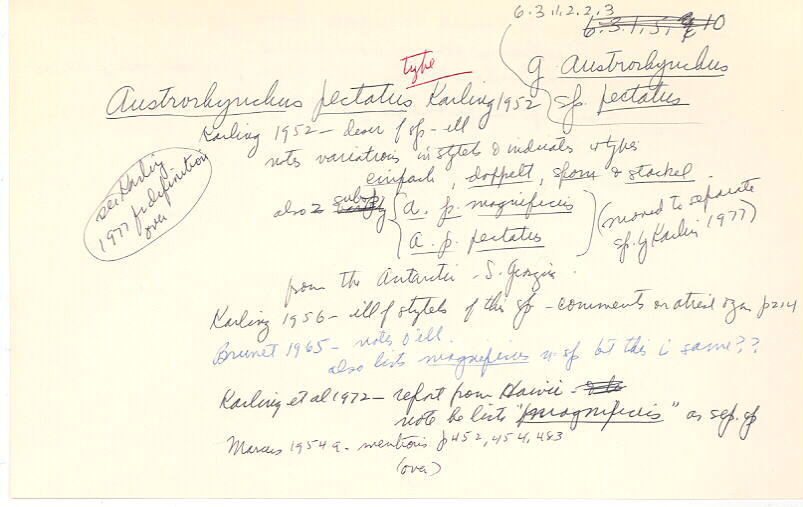 6.3.1.2.2.3
6.3.1.5.9.10
type
g Austrorhynchus
Austrorhynchus pectatus Karling 1952 sp. pectatus
Karling 1952 – descr of sp – ill
notes variations in stylets & indicates types
einfach, doppelt, sporn & stachel.
also 2 subsp { a. p. magnificus } (moved to separate
{ a. p. pectatus } sp. by Karlin 1977)
see Karling
1977 for definition
over
from the Antarctic – S. Georgia.
Karling 1956 – ill of stylets of this sp – comments on atrial organ p214
Brunet 1965 – notes & ill.
also lists magnificus n. sp but this is same??
Karling et al 1972 – report from Hawii –
note he lists "magnificus" as sep. sp
Marcus 1954a. mentions p 452, 454, 483
(over)